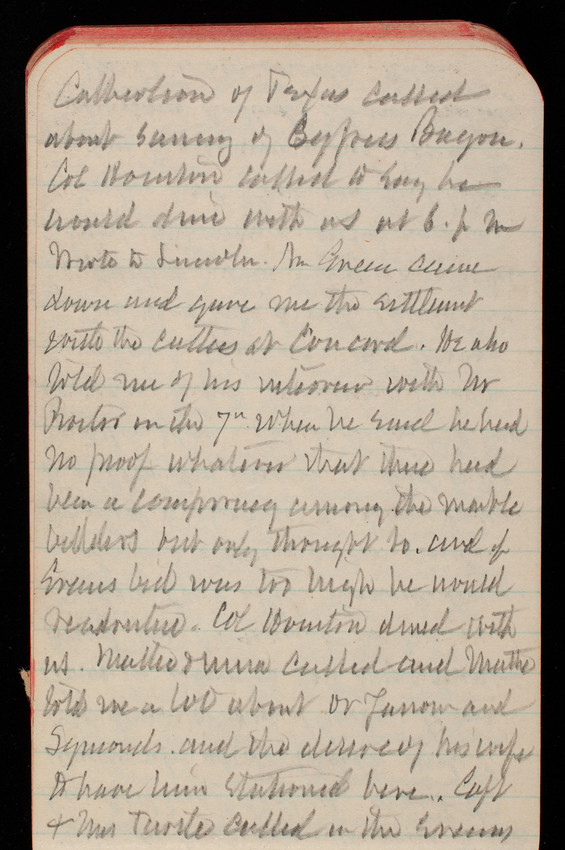 Culberson of Texas called
about Survey of Cypress Bayou.
Col Houston called to say he
would dine with us at 6. p m
Wrote to Lincoln. Mr Green came
down and gave me the settlemt
with the cutters at Concord. He also
told me of his interview with Mr
Proctor on the 7" when he said he had
no proof whatever that there had
been a conspiracy among the marble
bidders but only thought so. and if
Greens bid was too high he would
readvertise. Col Houston dined with
us. called and Mattie
told me a lot about Dr and
Symonds. and the desire of his wife
to have him stationed here. Capt
& Mrs Turtle called in the evening